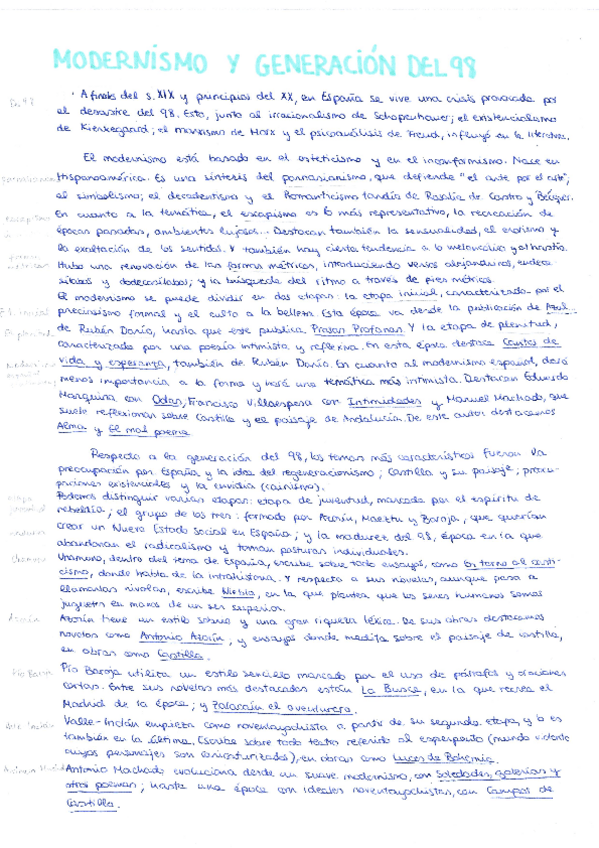 MODERNISMO Y GENERACIÓN DEL 98
· A finales del s. XIX y principios del XX, en España se vive una crisis provocada por
el desastre del 98. Esto, junto al irracionalismo de Schopenhauer; el existencialismo
de Kierkegaard; el marxismo de Marx y el psicoanálisis de Freud, influyó en la literatura.
El modernismo está basado en el esteticismo y en el inconformismo. Nace en
Hispanoamérica. Es una síntesis del parnasianismo, que defiende "el arte por el arte";
al simbolismo; el decadentismo y el Romanticismo tardío de Rosalía de Castro y Bécquer.
En cuanto a la temática, el escapismo es lo más representativo, la recreación de
épocas pasadas, ambientes lujosos... Destacan también la sensualidad, el erotismo y
la exaltación de los sentidos. Y también hay cierta tendencia a lo melancólico y
Hubo una renovación de las formas métricas, introduciendo versos alejandrinos, endeca-
sílabos y dodecasílabos; y la búsqueda del ritmo a través de pies métricos.
El modernismo se puede dividir en dos etapas: la etapa inicial, caracterizada por el
preciosismo formal y el culto a la belleza. Esta época va desde la publicación de Azul...
de Rubén Darío, hasta que este publica Prosas Profanas. Y la etapa de plenitud,
caracterizada por una poesía intimista y reflexiva. En esta época destaca Cantos de
vida y esperanza, también de Rubén Darío. En cuanto al modernismo español, dará
menos importancia a la forma y hará una temática más intimista. Destacan Eduardo
Marquina con Odas, Francisco Villaespesa con Intimidades y Manuel Machado, que
suele reflexionar sobre Castilla y el paisaje de Andalucía. De este autor destacamos
Alma y El mal poema
Respecto a la generación del 98, los temas más característicos fueron la
preocupación por España y la idea del regeneracionismo; Castilla y su paisaje; preocu-
paciones existenciales y la envidia (cainismo).
Podemos distinguir varias etapas: etapa de juventud, marcada por el espíritu de
rebeldía; el grupo de los tres: formado por Azorín, Maeztu y Baroja, que querían
crear un Nuevo Estado Social en España; y la madurez del 98, época en la que
abandonan el radicalismo y toman posturas individuales.
Unamuno
Unamuno, dentro del tema de España, escribe sobre todo ensayos, como En torno al casti-
cismo, donde habla de la intrahistoria. Y respecto a sus novelas, aunque pasa a
llamarlas nivolas, escribe Niebla, en la que plantea que los seres humanos somos
juguetes en manos de un ser superior.
Azorín
Azorín tiene un estilo sobrio y una gran riqueza léxica. De sus obras destacamos
novelas como Antonio Azorín; y ensayos donde medita sobre el paisaje de Castilla,
en obras como Castilla.
Pío Baroja
Pío Baroja utiliza un estilo sencillo marcado por el uso de párrafos y oraciones
cortas. Entre sus novelas más destacadas están La Busca, en la que recrea el
Madrid de la época; y Zalacaín el aventurero.
Valle-Inclán empieza como noventayochista a partir de su segunda etapa, y lo es
también en la última. Escribe sobre todo teatro referido al esperpento (mundo violento
cuyos personajes son caricaturizados), en obras como Luces de Bohemia.
Antonio Machado evoluciona desde un suave modernismo, con Soledades, galerías y
otros poemas; hasta una época con ideales noventayochistas, con Campos de
Castilla.